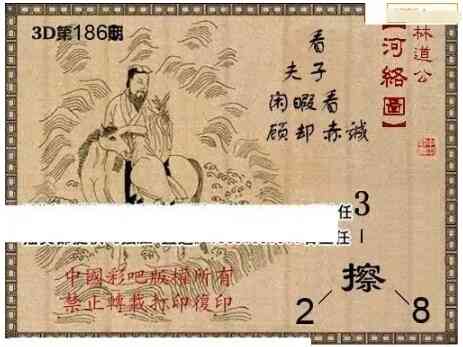 3D第186期
林道公
【河络圖】
看
夫子
闲暇看
顾却赤诚
任 3
主任
擦
2 8
中國彩吧版權所有
禁止轉裁打印復印